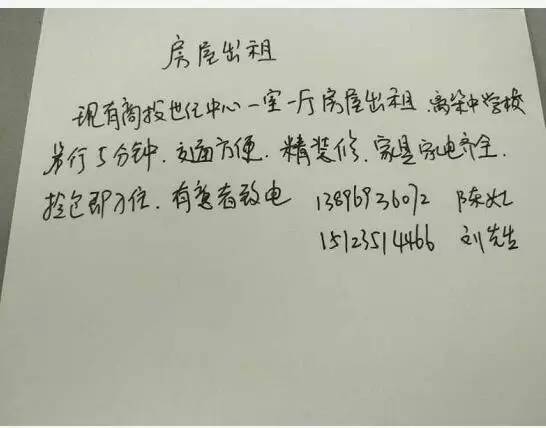 房屋出租
现有商投世纪中心一室一厅房屋出租.离荣中学校
步行5分钟.交通方便.精装修.家具家电齐全.
拎包即可住.有意者致电 13896936072 陈女士
15123514466 刘先生